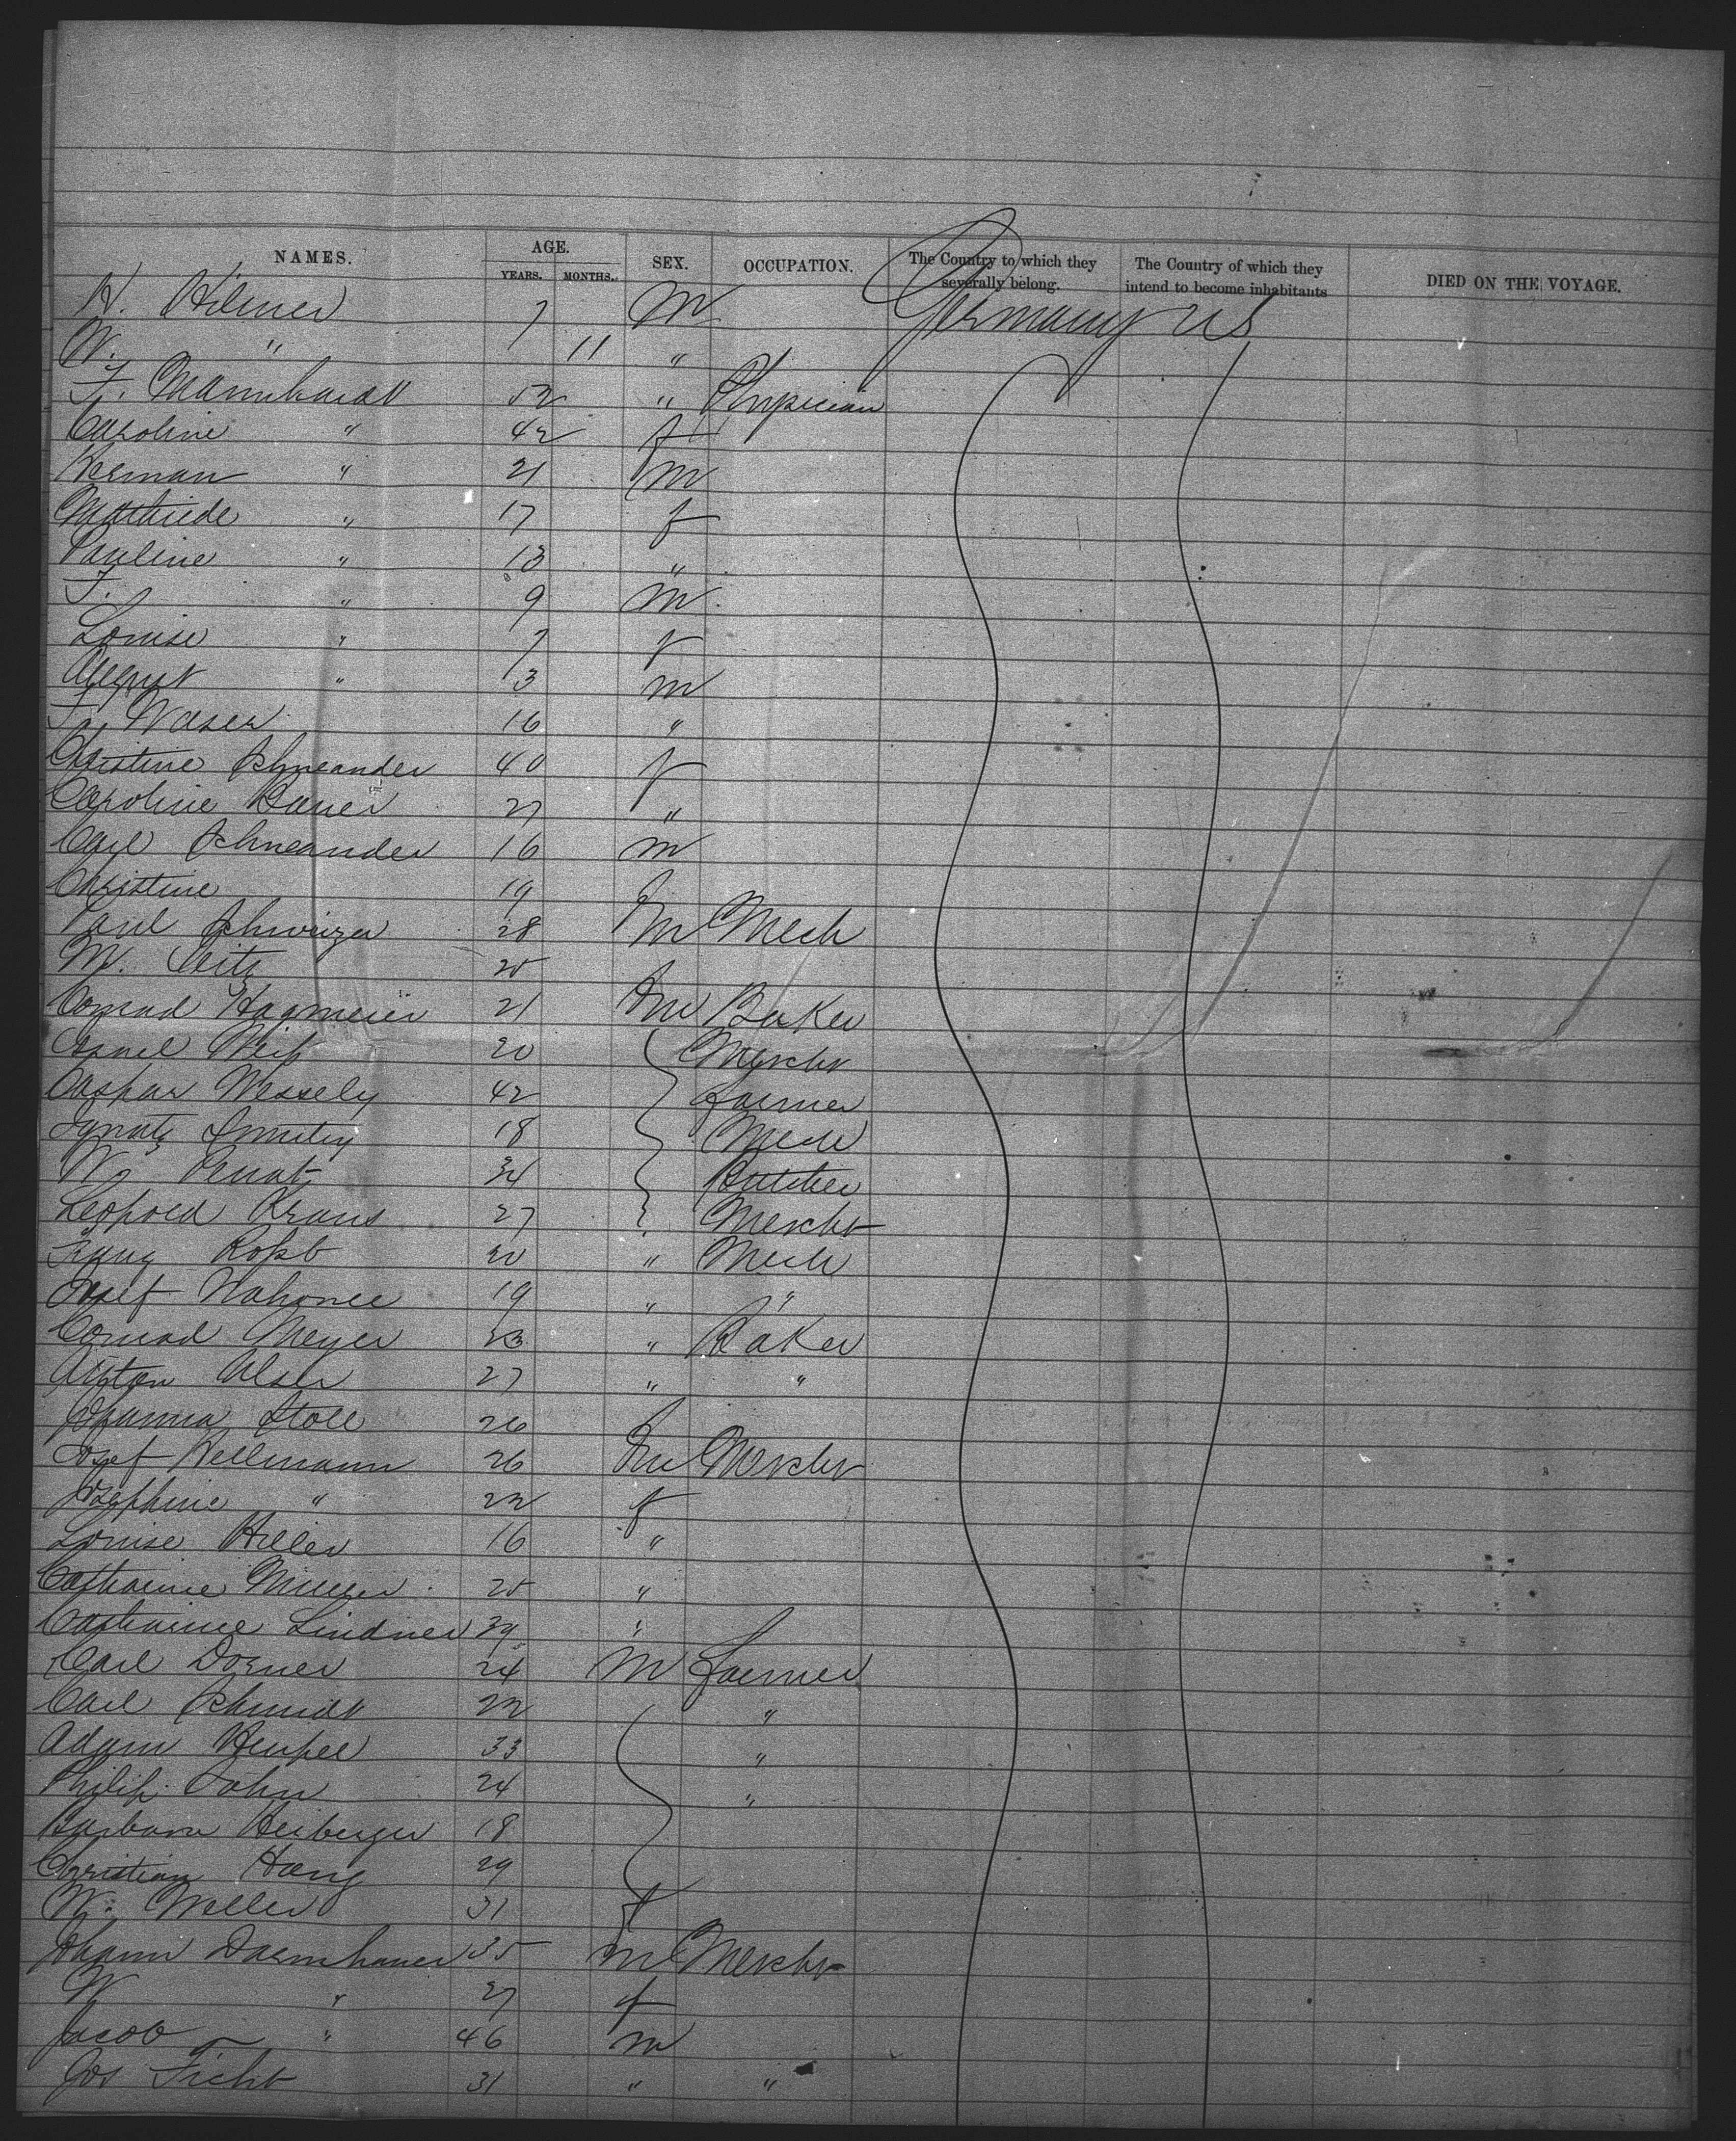 NAMES. AGE. YEARS. MONTHS. SEX. OCCUPATION. The Country to which they severally belong. The Country of which they intend to become inhabitants DIED ON THE VOYAGE.
H. Hilmer 7 M Germany US
W. " 11 "
F. Mannhardt 52 " Physician
Caroline " 42 f
Herman " 21 m
" 17 f
Pauline " 13 "
F. " 9 m
Louise " 7 f
August " 3 m
F. Waser 16 "
Christine Schneander 40 f
Caroline Bauer 27 "
Carl Schneander 16 m
Christine 19
Paul Schweizer 28 m Mech
M. Seitz 25
Conrad Hagmeier 21 m Baker
20 Mercht
Caspar Wessely 42 Farmer
Ignatz 18 Mech
W. 34 Butcher
Leopold Kraus 27 Mercht
" Mech
Josef 19 " "
Conrad Meyer 23 " Baker
Anton 27 " "
Johanna Stoll 26
Josef Wellmann 26 m Mercht
Josephine " 22 f
Louise Hiller 16 "
Catharine Muller 25 "
Catharine Lindner 39 "
Carl Dorner 24 M Farmer
Carl Schmidt 22 "
Adam 33 "
Philip John 24 "
Barbara Heiberger 18
Christian Haug 29
W. Meller 31 f
Johann 35 m Mercht
W " 27 f
Jacob " 46 m
Jos Ficht 31 " "